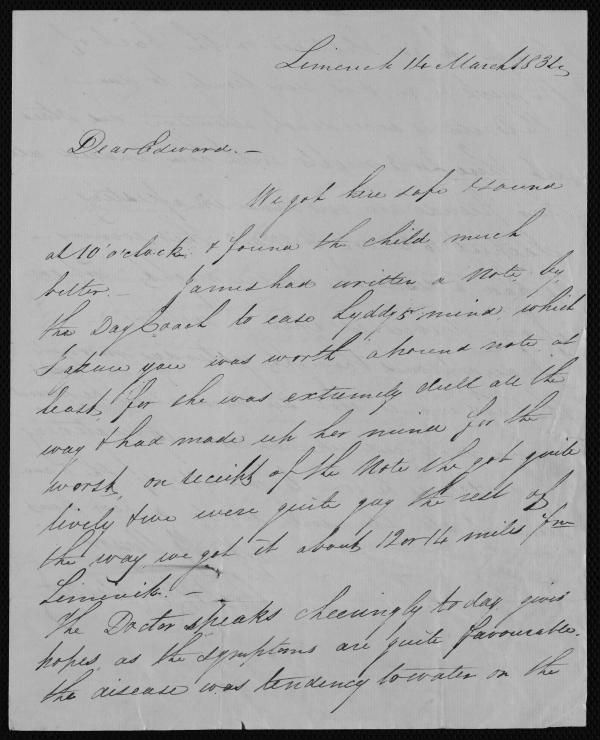 Limerick 14 March 1834
Dear Edward. –
We got here safe & sound
at 10 o'clock & found the child much
better. – James had written a Note by
the Day Coach to ease Lyddy's mind which
I assure you was worth a pound note at
least, for she was extremely dull all the
way & had made up her mind for the
worst, on receipt of the Note she got quite
lively & we were quite gay the rest of
the way we got it about 12 or 14 miles from
Limerick. –
The Doctor speaks cheeringly today, gives
hopes, as the symptoms are quite favourable.
the disease was tendency to water on the